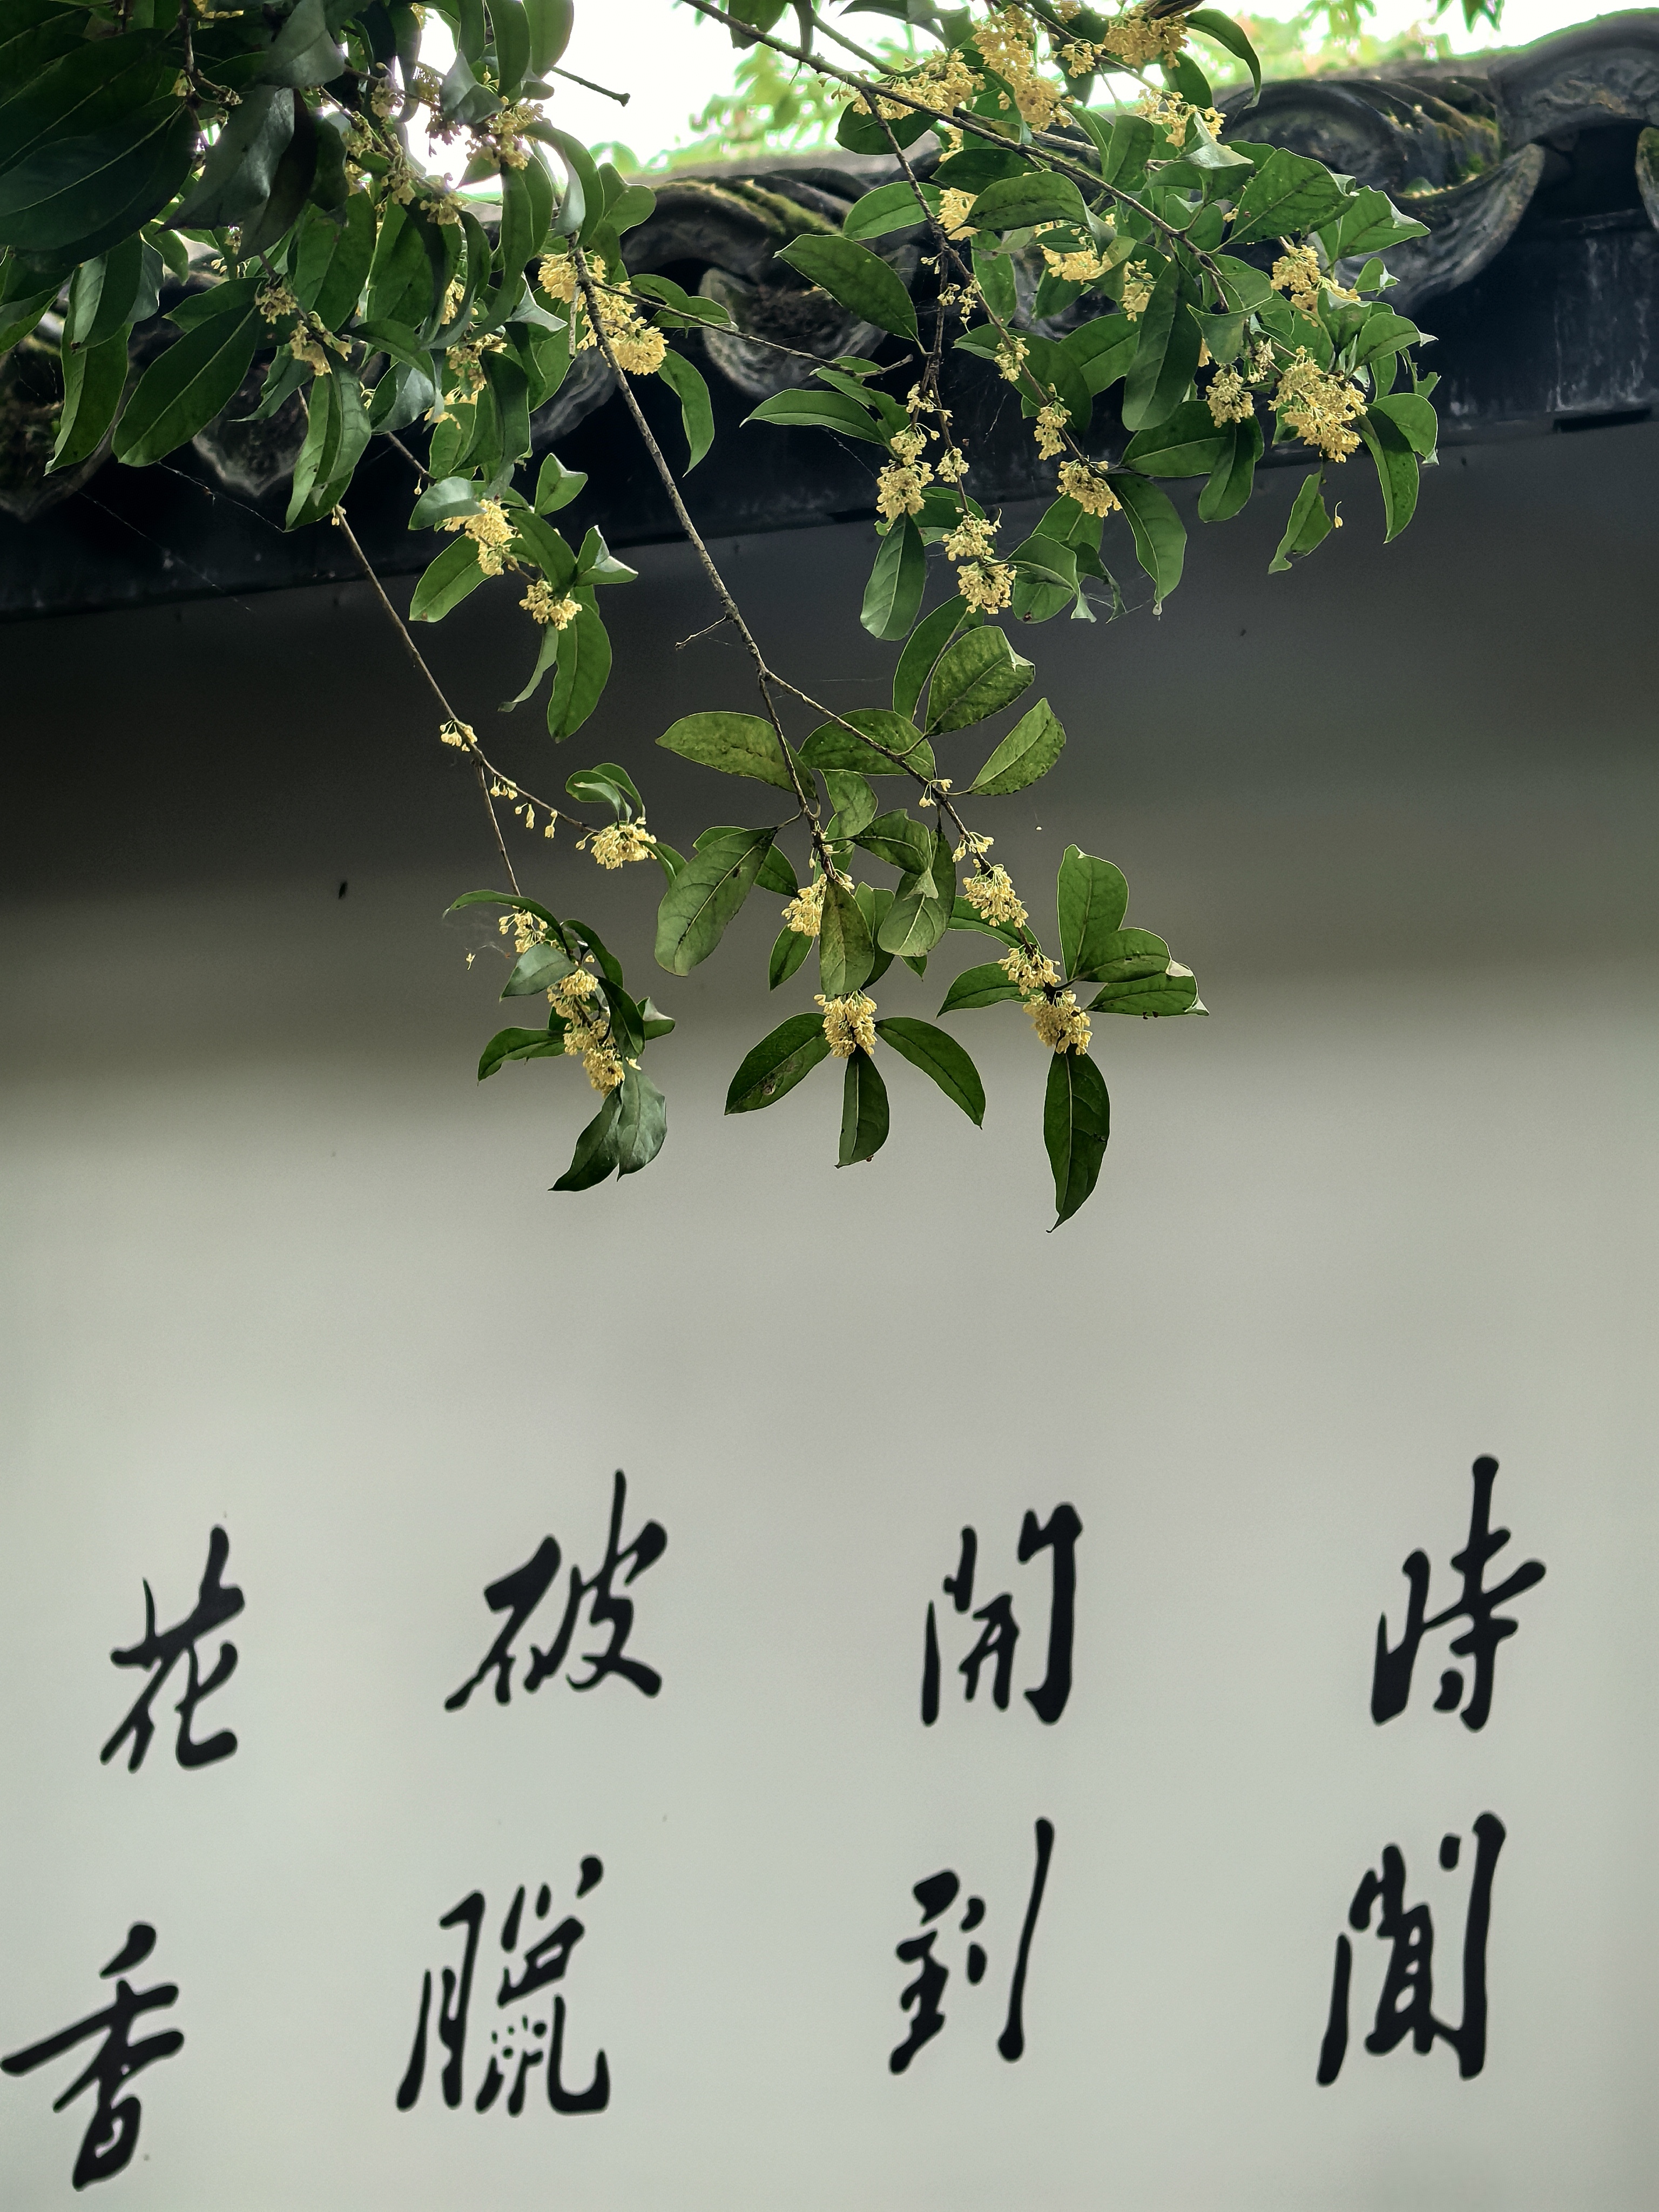 時聞
開到
破臘
花香